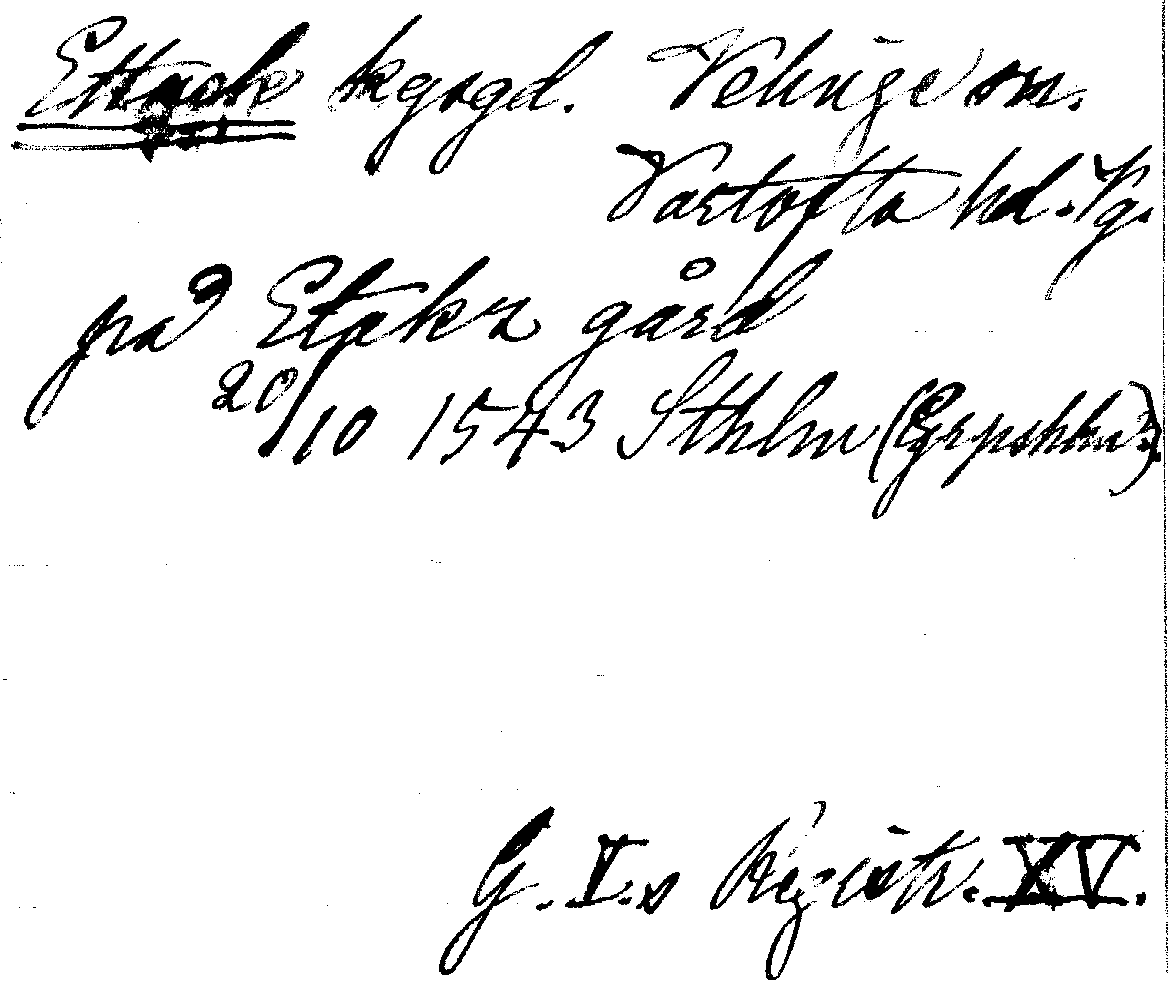 Ettack kgsgd. Velinge sn.
Vartofta hd. Vg.
på Etakz gård
20/10 1543 Sthlm (Grpshlm).
G. I.s Registr. XV.